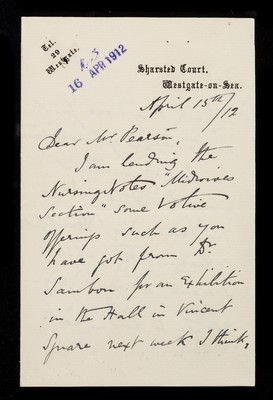 Tel.
29
Westgate.
16 APR 1912
Sharsted Court,
Westgate-on-Sea.
April 15th/12
Dear Mr Pearson,
I am lending the
Nursing Notes "Midwives
Section" some Votive
offerings such as you
have got from Dr
Sambon for an Exhibition
in the Hall in Vincent
Square next week I think,